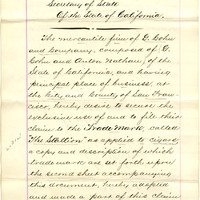 Secretary of State
Of the State of California.
The mercantile firm of G. Cohn
and Company, composed of G.
Cohn and Anton Nathan, of the
State of California, and having
principal place of business at
the City and County of San Fran-
cisco, hereby desire to secure the
exclusive use of and to file this
claim to the Trade Mark, called
"The Stallion" as applied to cigars,
a copy and description of which
trade mark are set forth upon
the second sheet accompanying
this document, hereby adopted
and made a part of this claim